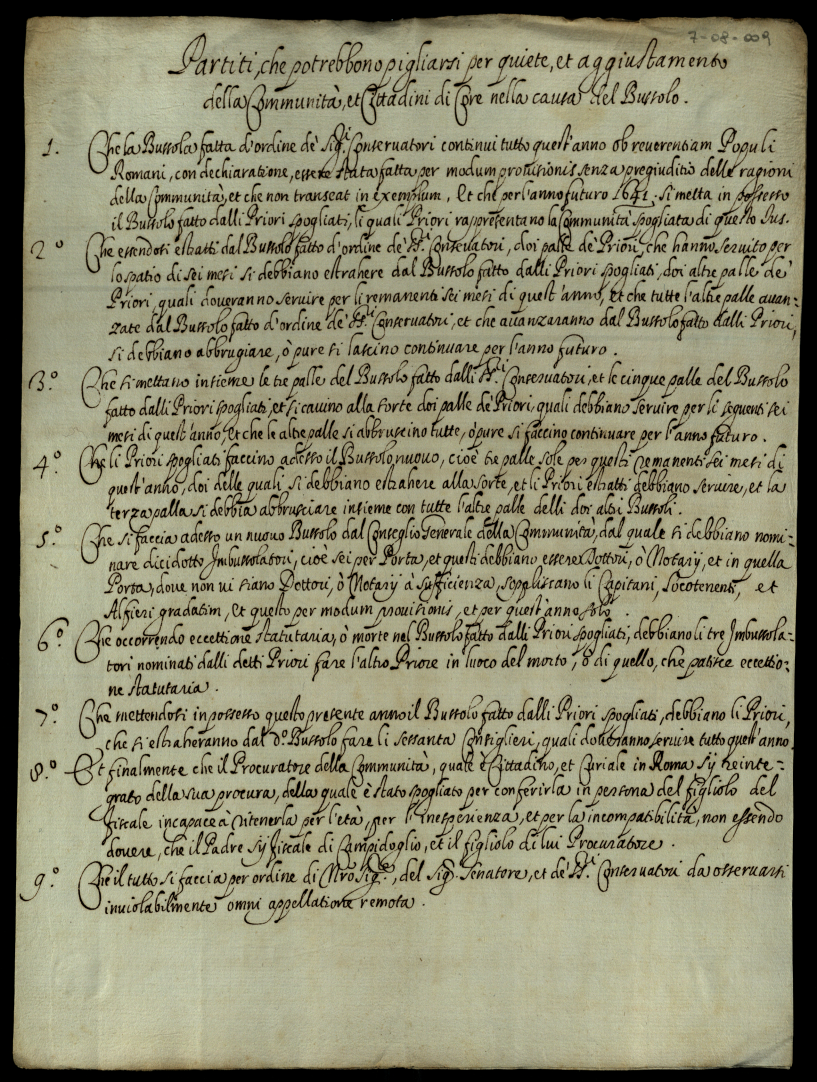 7-08-009
Partiti, che potrebbono pigliarsi per quiete, et aggiustamento
della Communità, et Cittadini di Core nella causa del Bussolo.
1. Che la Bussola fatta d'ordine de' Sig.ri Conservatori continui tutto quest'anno ob reverentiam Populi
Romani, con dechiaratione, essere stata fatta per modum provisionis senza pregiuditio delle ragioni
della Communità, et che non transeat in exemplum, Et che per l'anno futuro 1641. si metta in possesso
il Bussolo fatto dalli Priori spogliati, li quali Priori rappresentano la Communità spogliata di questo Jus.
2.º Che essendosi estratti dal Bussolo fatto d'ordine de' SS.ri Conservatori, doi palle de' Priori, che hanno servito per
lo spatio di sei mesi si debbiano estrahere dal Bussolo fatto dalli Priori spogliati, doi altre palle de'
Priori, quali doveranno servire per li remanenti sei mesi di quest'anno, et che tutte l'altre palle avan-
zate dal Bussolo fatto d'ordine de' SS.ri Conservatori, et che avanzaranno dal Bussolo fatto dalli Priori,
si debbiano abbrugiare, ò pure si lascino continuare per l'anno futuro.
3.º Che si mettano insieme le tre palle del Bussolo fatto dalli SS.ri Conservatori, et le cinque palle del Bussolo
fatto dalli Priori spogliati, et si cavino alla sorte doi palle de' Priori, quali debbiano servire per li sequenti sei
mesi di quest'anno, et che le altre palle si abbruscino tutte, ò pure si faccino continuare per l'anno futuro.
4.º Che li Priori spogliati faccino adesso il Bussolo nuovo, cioè tre palle sole per questi remanenti sei mesi di
quest'anno, doi delle quali si debbiano estrahere alla sorte, et li Priori estratti debbiano servire, et la
terza palla si debbia abbrusciare insieme con tutte l'altre palle delli doi altri Bussoli.
5.º Che si faccia adesso un nuovo Bussolo dal Conseglio Generale della Communità, dal quale si debbiano nomi-
nare dicidotto Imbussolatori, cioè sei per Porta, et questi debbiano essere Dottori, ò Notarij, et in quella
Porta, dove non vi siano Dottori, ò Notarij à sufficienza, sopplischano li Capitani, Locotenenti, et
Alfieri gradatim, Et questo per modum provisionis, et per quest'anno solo.
6.º Che occorrendo eccettione statutaria, ò morte nel Bussolo fatto dalli Priori spogliati, debbiano li tre Imbussola-
tori nominati dalli detti Priori fare l'altro Priore in luoco del morto, ò di quello, che patisce eccettio-
ne statutaria.
7.º Che mettendosi in possesso questo presente anno il Bussolo fatto dalli Priori spogliati, debbiano li Priori,
che si estraheranno dal d.º Bussolo fare li sessanta Consiglieri, quali doveranno servire tutto quest'anno.
8.º Et finalmente che il Procuratore della Communità, quale è Cittadino, et Curiale in Roma sij reinte-
grato della sua procura, della quale è stato spogliato per conferirla in persona del figliolo del
fiscale incapace à ritenerla per l'età, per l'inesperienza, et per la incompatibilità, non essendo
dovere, che il Padre sij fiscale di Campidoglio, et il figliolo di lui Procuratore.
9.º Che il tutto si faccia per ordine di Nro Sig.re, del Sig.r Senatore, et de' SS.ri Conservatori da osservarsi
inviolabilmente omni appellatione remota.